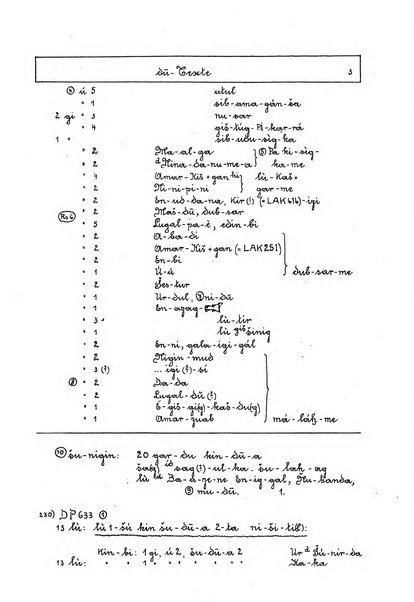 dū-Texte 3
④ ú 5 utul
" 1 sib-ama-gán-ša
2 gi " 3 nu-sar
" 4 giš-túg-PI-kar-rá
1 " " sib-udu-sig-ka
" 2 Ma-al-ga ⑤ Pa ki-sig-
" 2 ᵈNina-da-nu-me-a ka-me
" 4 Amar-Kiš+gan ᵏⁱ lù-Kaš+
" 2 Ni-ni-pi-ni gar-me
" 2 En-ud-da-na, Kir(!) (=LAK 416)-igi
Rs 6 " 2 Maš-dū, dub-sar
" 5 Lugal-pa-è, edin-bi
" 2 A-ba-di
" 2 Amar-Kiš+gan (=LAK 251)
" 2 En-bi
" 1 Ú-ú dub-sar-me
" 2 Šeš-tur
" 1 Ur-dul, ⑦ni-dū
" 1 En-azag-
" 3 lù-tir
" 1 lù ᵍⁱššinig
" 2 En-ni, gala-igi-gál
" 2 Nigin-mud
" 3 (?) ... igi (?)-sí
⑧ " 2 Da-da
" 2 Lugal-dū (?)
" 1 E-giš-gi(g)-kaš-du(g)
" 1 Amar-zuab má-láḫ-me
⑩ Šu-nigin: 20 gar-du kin-dū-a
ša(g) íd sag(?)-ul-ka. Šu-laḫ-ag
lù ᵈBa-ú-ne-ne En-ig-gal, Nu-banda,
⑨ mu-dū. 1.
230) DP 633 ①
13 lù: lù 1-šú kin šu-dū-a 2-ta ni-ši-tíl):
Kin-bi: 1 gi, ú 2, šu-dū-a 2 Ur ᵈŠú-nir-da
13 lù: " " 1 " " " " " Ka-ka